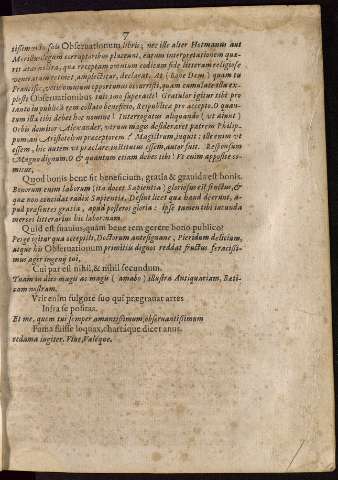 7
tissimum in suis Observationum libris; nec ille alter Hotmanus aut
Merillus legum corruptoribus placerent, earum interpretationem quæ-
rit atque nostra, qua receptam omnium codicum fide litteram religiose
veneratam retinet, amplectitur, declarat. At (bone Deus) quam tu
Francisce, votis omnium opportunus occurristi, quam cumulate illa ex-
plesti Observationibus tuis quo superasti? Gratulor igitur tibi pro
tanto in publicā rem collato beneficio, Respublica pro accepto. O quan-
tum illa tibi debet hoc nomine! Interrogatus aliquando (ut aiunt)
Orbis domitor Alexander, utrum magis desideraret patrem Philip-
pum an Aristotelem præceptorem? Magistrum, inquit: ille enim ut
essem, hic autem ut præclare institutus essem, autor fuit. Responsum
Magno dignum. O & quantum etiam debet tibi! Vt enim apposite co-
micus,
Quod bonis bene fit beneficium, gratia & gravida est bonis.
Bonorum enim laborum (ita docet Sapientia) gloriosus est fructus, &
quæ non concidat radix Sapientia, Desint licet qua haud deerunt, a-
pud præsentes gratia, apud posteros gloria: ipse tamen tibi iucunda
merces litterarius hic labor: nam
Quid est suavius, quàm bene rem gerere bono publico?
Perge igitur qua cœpisti, Doctorum antesignane, Pieridum delicium,
atque his Observationum primitiis dignos reddat fructus feracissi-
mus ager ingenij tui,
Cui par est nihil, & nihil secundum.
Tuam in dies magis ac magis (amabo) illustra Antiquariam, Bati-
zam nostram.
Vrit enim fulgore suo qui prægravat artes
Infra se positas.
Et me, quem tui semper amantissimum, observantissimum
Fama fuisse loquax, chartaque dicet anus.
redama iugiter. Vive, Valeque.